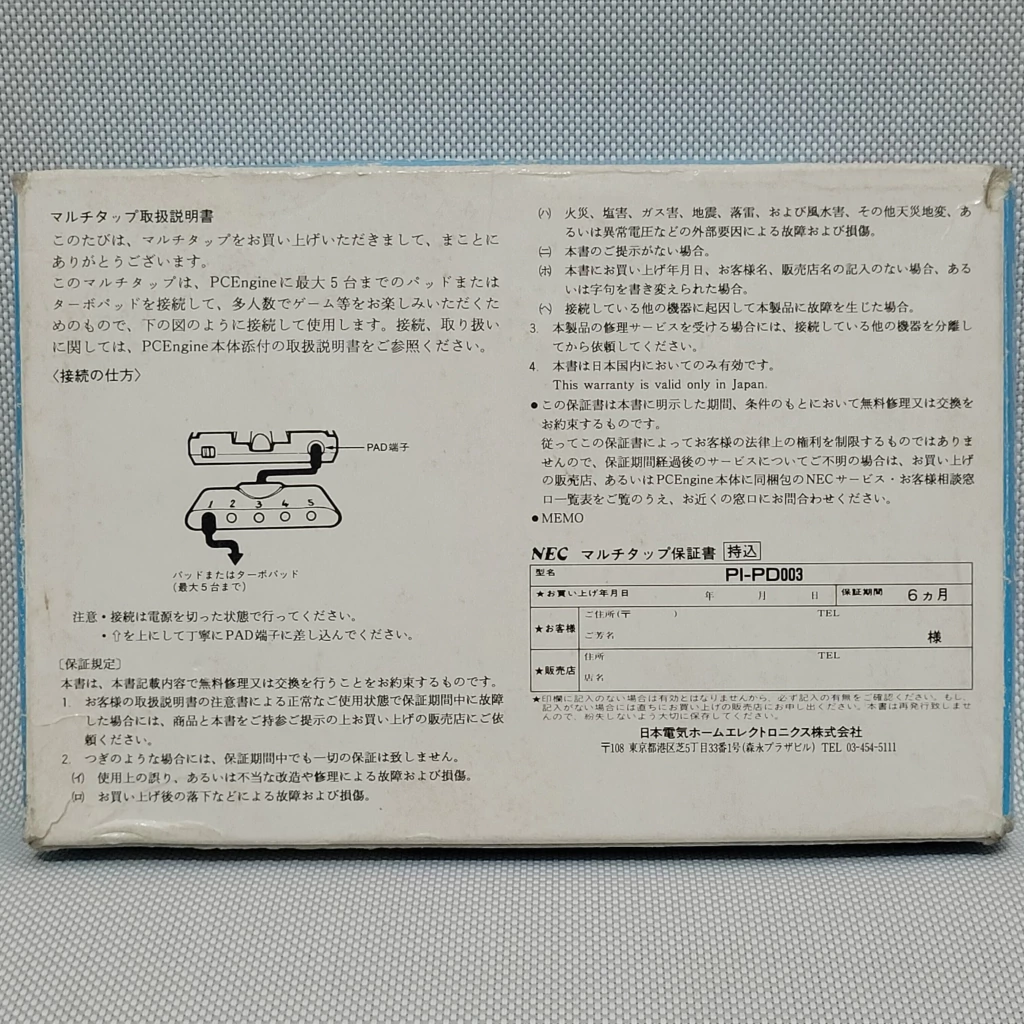 マルチタップ取扱説明書
このたびは、マルチタップをお買い上げいただきまして、まことに
ありがとうございます。
このマルチタップは、PCEngineに最大5台までのパッドまたは
ターボパッドを接続して、多人数でゲーム等をお楽しみいただくた
めのもので、下の図のように接続して使用します。接続、取り扱い
に関しては、PCEngine本体添付の取扱説明書をご参照ください。
〈接続の仕方〉
PAD端子
1 2 3 4 5
パッドまたはターボパッド
(最大5台まで)
注意・接続は電源を切った状態で行ってください。
・⇧を上にして丁寧にPAD端子に差し込んでください。
〔保証規定〕
本書は、本書記載内容で無料修理又は交換を行うことをお約束するものです。
1. お客様の取扱説明書の注意書による正常なご使用状態で保証期間中に故障
した場合には、商品と本書をご持参ご提示の上お買い上げの販売店にご依
頼ください。
2. つぎのような場合には、保証期間中でも一切の保証は致しません。
(イ) 使用上の誤り、あるいは不当な改造や修理による故障および損傷。
(ロ) お買い上げ後の落下などによる故障および損傷。
(ハ) 火災、塩害、ガス害、地震、落雷、および風水害、その他天災地変、あ
るいは異常電圧などの外部要因による故障および損傷。
(ニ) 本書のご提示がない場合。
(ホ) 本書にお買い上げ年月日、お客様名、販売店名の記入のない場合、ある
いは字句を書き変えられた場合。
(ヘ) 接続している他の機器に起因して本製品に故障を生じた場合。
3. 本製品の修理サービスを受ける場合には、接続している他の機器を分離し
てから依頼してください。
4. 本書は日本国内においてのみ有効です。
This warranty is valid only in Japan.
●この保証書は本書に明示した期間、条件のもとにおいて無料修理又は交換を
お約束するものです。
従ってこの保証書によってお客様の法律上の権利を制限するものではありま
せんので、保証期間経過後のサービスについてご不明の場合は、お買い上げ
の販売店、あるいはPCEngine本体に同梱包のNECサービス・お客様相談窓
口一覧表をご覧のうえ、お近くの窓口にお問合わせください。
●MEMO
NEC マルチタップ保証書 持込
型名 PI-PD003
★お買い上げ年月日 年 月 日 保証期間 6ヵ月
★お客様 ご住所(〒 ) TEL
ご芳名 様
★販売店 住所 TEL
店名
★印欄に記入のない場合は有効とはなりませんから、必ず記入の有無をご確認ください。もし、
記入がない場合には直ちにお買い上げの販売店にお申し出ください。本書は再発行致しませ
んので、紛失しないよう大切に保存してください。
日本電気ホームエレクトロニクス株式会社
〒108 東京都港区芝5丁目33番1号(森永プラザビル) TEL 03-454-5111